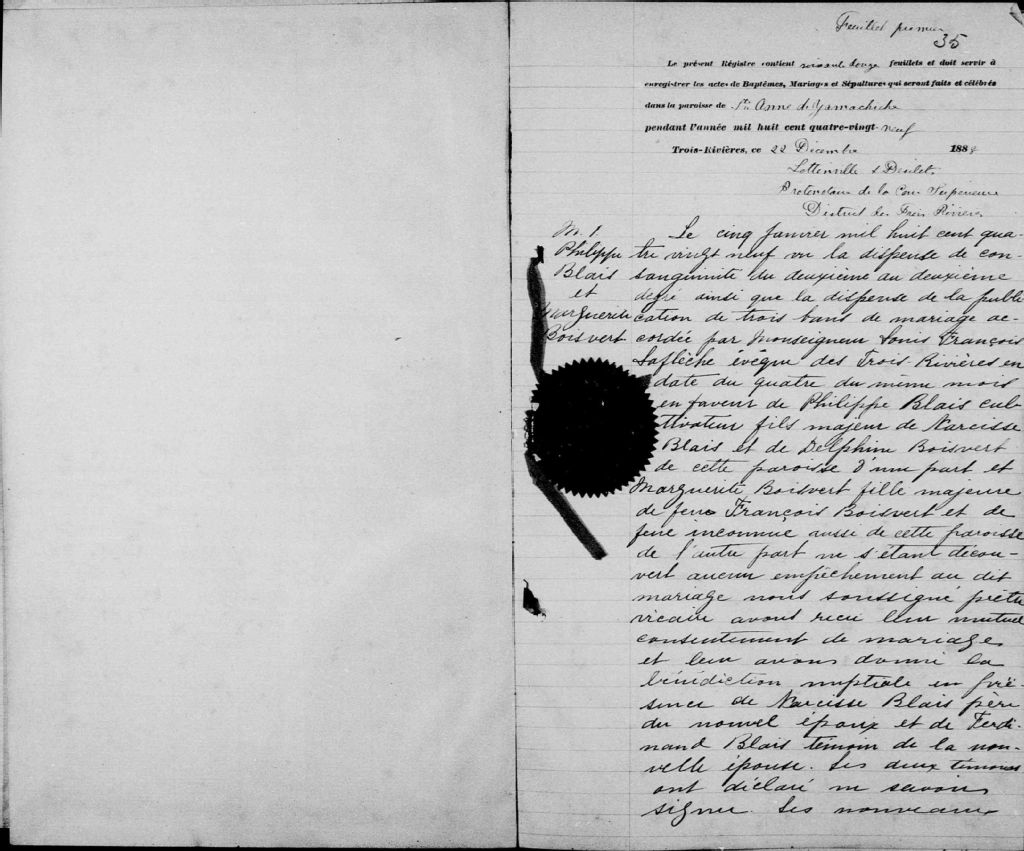 Feuillet premier
35
Le présent Régistre contient soixante douze feuillets et doit servir à
enregistrer les actes de Baptêmes, Mariages et Sépultures qui seront faits et célébrés
dans la paroisse de Ste Anne de Yamachiche
pendant l'année mil huit cent quatre-vingt-neuf
Trois-Rivières, ce 22 Décembre 1888
Lottinville & Désilets
Protonotaire de la Cour Supérieure
District des Trois Rivières
M. 1.
Philippe
Blais
et
Marguerite
Boisvert
Le cinq Janvier mil huit cent qua-
tre vingt neuf vu la dispense de con-
sanguinité du deuxième au deuxième
degré ainsi que la dispense de la publi
cation de trois bans de mariage ac-
cordée par Monseigneur Louis François
Laflèche évêque des Trois Rivières en
date du quatre du même mois
en faveur de Philippe Blais cul-
tivateur fils majeur de Narcisse
Blais et de Delphine Boisvert
de cette paroisse d'une part et
Marguerite Boisvert fille majeure
de feue François Boisvert et de
feue inconnue aussi de cette paroisse
de l'autre part ne s'étant décou-
vert aucun empêchement au dit
mariage nous soussigné prêtre
vicaire avons reçu leur mutuel
consentement de mariage
et leur avons donné la
bénédiction nuptiale en pré-
sence de Narcisse Blais père
du nouvel époux et de Ferdi-
nand Blais témoin de la nou-
velle épouse. Les deux témoins
ont déclaré ne savoir
signer. Les nouveaux